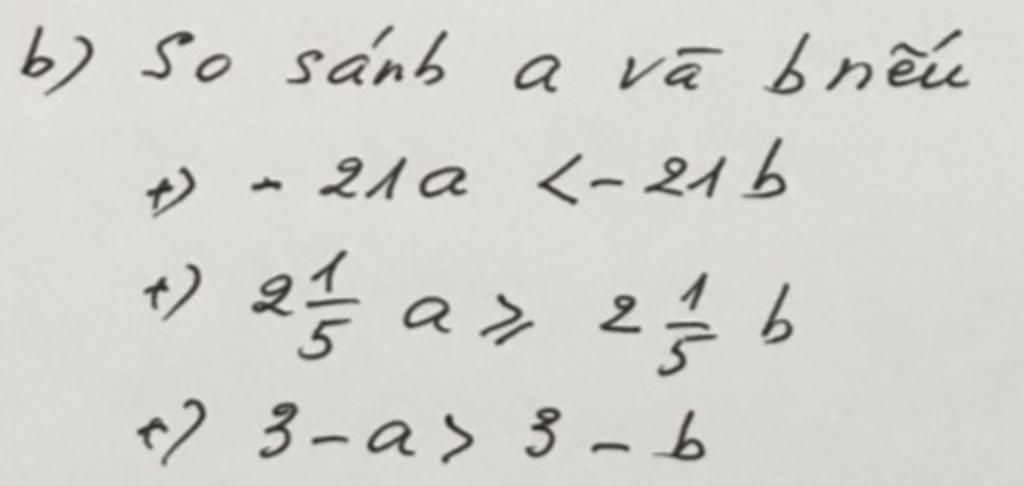 b) So sánh a và b nếu
+) - 21a < - 21b
+) 2 1/5 a ⩾ 2 1/5 b
+) 3 - a > 3 - b